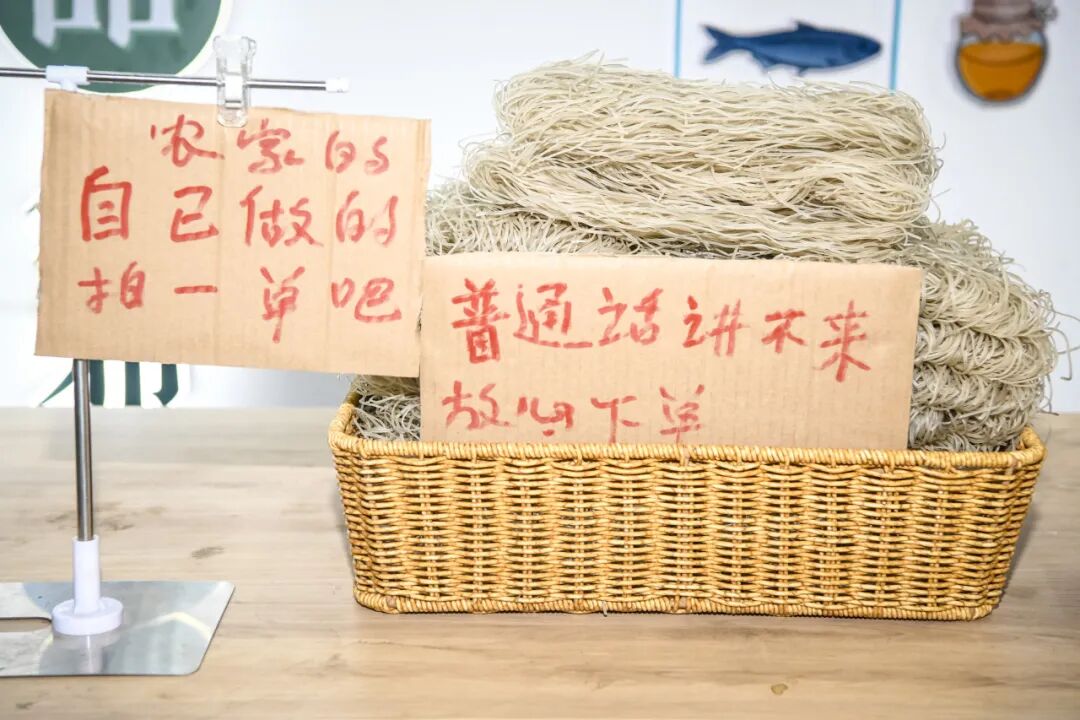 品
农家的
自己做的
拍一单吧
普通话讲不来
放心下单